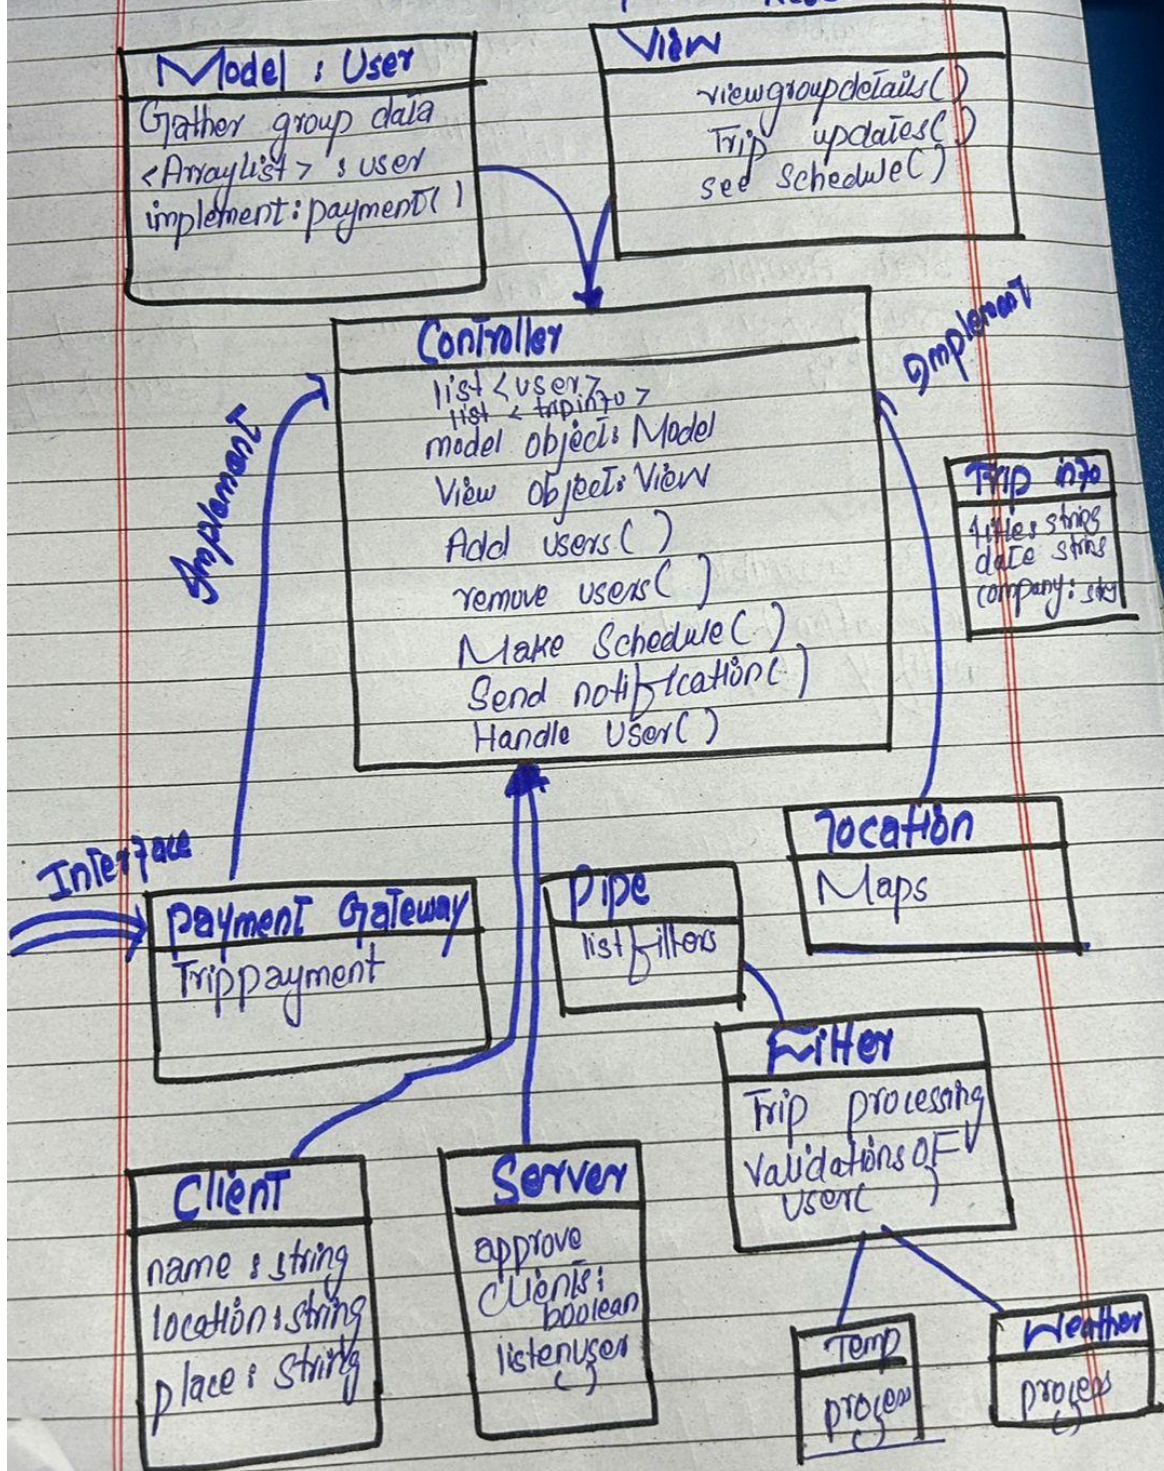 Model : User
Gather group data
<Arraylist> : user
implement : payment( )
View
viewgroupdetails( )
Trip updates( )
see schedule( )
Controller
list <user>
list < tripinfo >
model object: Model
View object: View
Add users( )
remove users( )
Make Schedule( )
Send notification( )
Handle User( )
Implement
Implement
Trip info
title: string
date string
company:
Interface
payment Gateway
Trippayment
Pipe
listfilters
location
Maps
Filter
Trip processing
Validations OF
User( )
Client
name : string
location : string
place : string
Server
approve
clients :
boolean
listenuser
( )
Temp
process
( )
Weather
process
( )